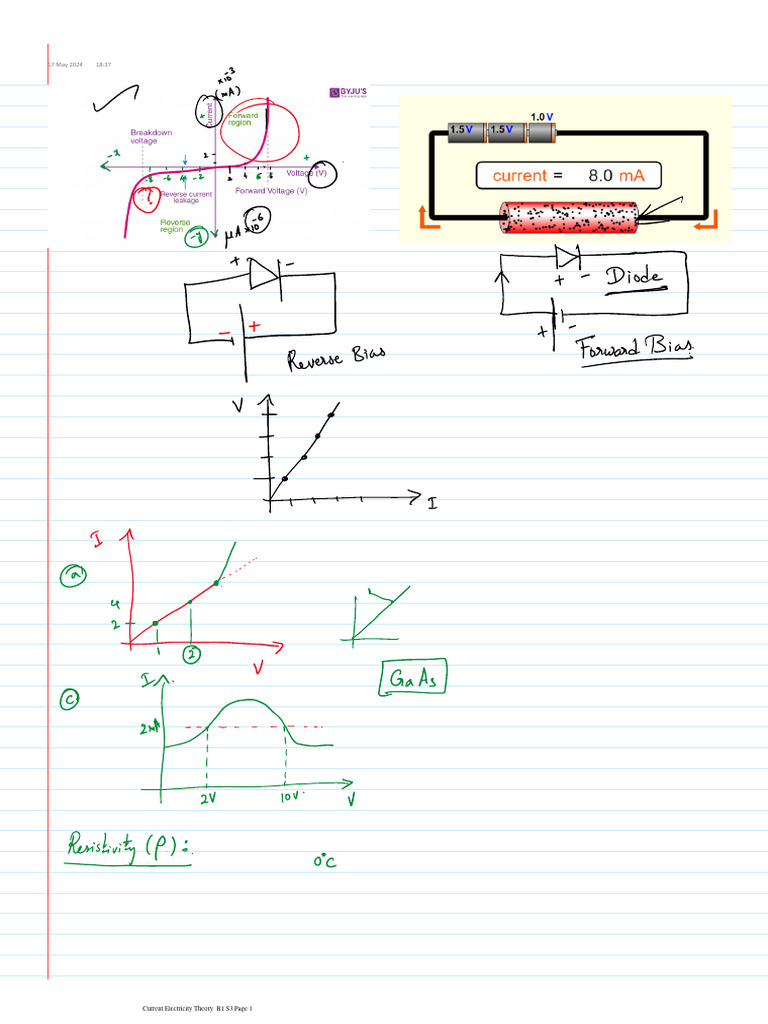 17 May 2024 18:17
×10⁻³
(mA)
BYJU'S
Current
+
Forward
region
Breakdown
voltage
-x
2
+
-8 -6 -4 -2
2 4 6 8
Voltage (V)
Reverse current
leakage
Forward Voltage (V)
Reverse
region
-y
μA ×10⁻⁶
1.0 V
1.5 V 1.5 V
current = 8.0 mA
+ -
- +
Reverse Bias
+ - Diode
+ -
Forward Bias
V
I
I
(a)
4
2
1 2
V
GaAs
(c)
I
2mA
2V 10V
V
Resistivity (ρ):
0°C
Current Electricity Theory B1 S3 Page 1